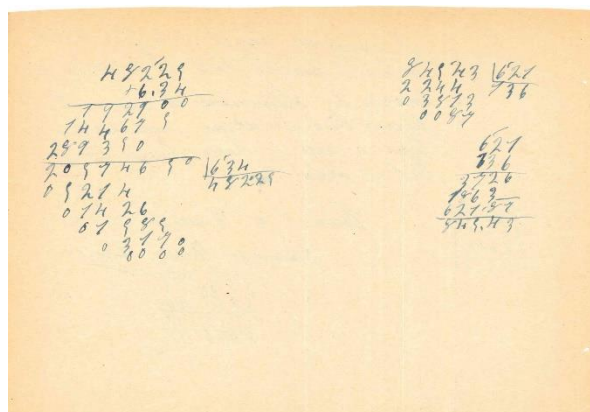 48225
6.34
192900
144675
289350
30574650 634
05214 48225
01426
01585
03170
0000
84543 621
2244 136
03813
0087
621
136
3726
1863
621.87
845.43